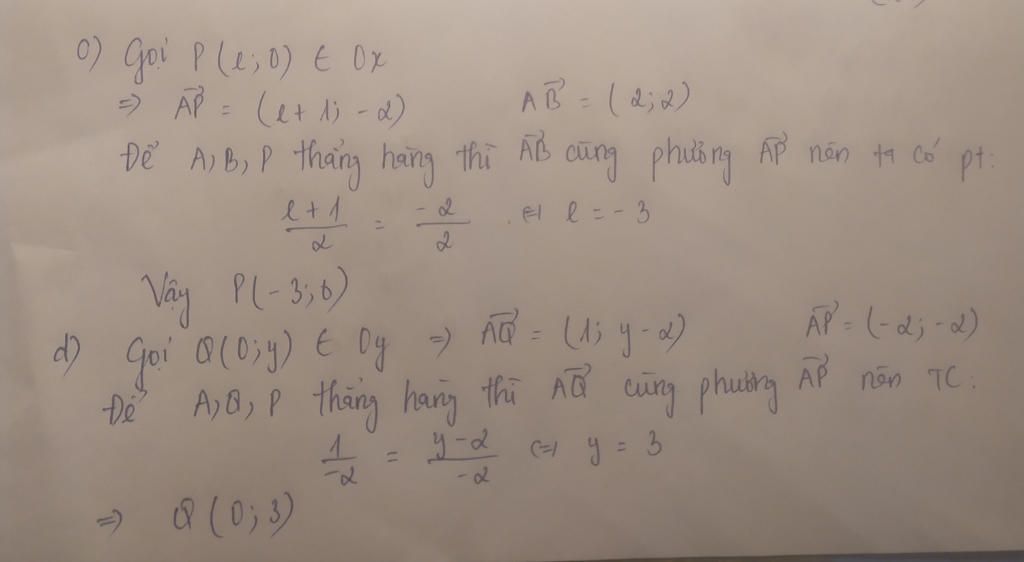 c) Gọi P(x;0) ∈ Ox
⇒ AP⃗ = (x+1; -2) AB⃗ = (2;2)
Để A,B,P thẳng hàng thì AB⃗ cùng phương AP⃗ nên ta có pt:
x+1/2 = -2/2 ⇔ x = -3
Vậy P(-3;0)
d) Gọi Q(0;y) ∈ Oy ⇒ AQ⃗ = (1; y-2) AP⃗ = (-2;-2)
Để A,Q,P thẳng hàng thì AQ⃗ cùng phương AP⃗ nên TC:
1/-2 = y-2/-2 ⇔ y = 3
⇒ Q(0;3)